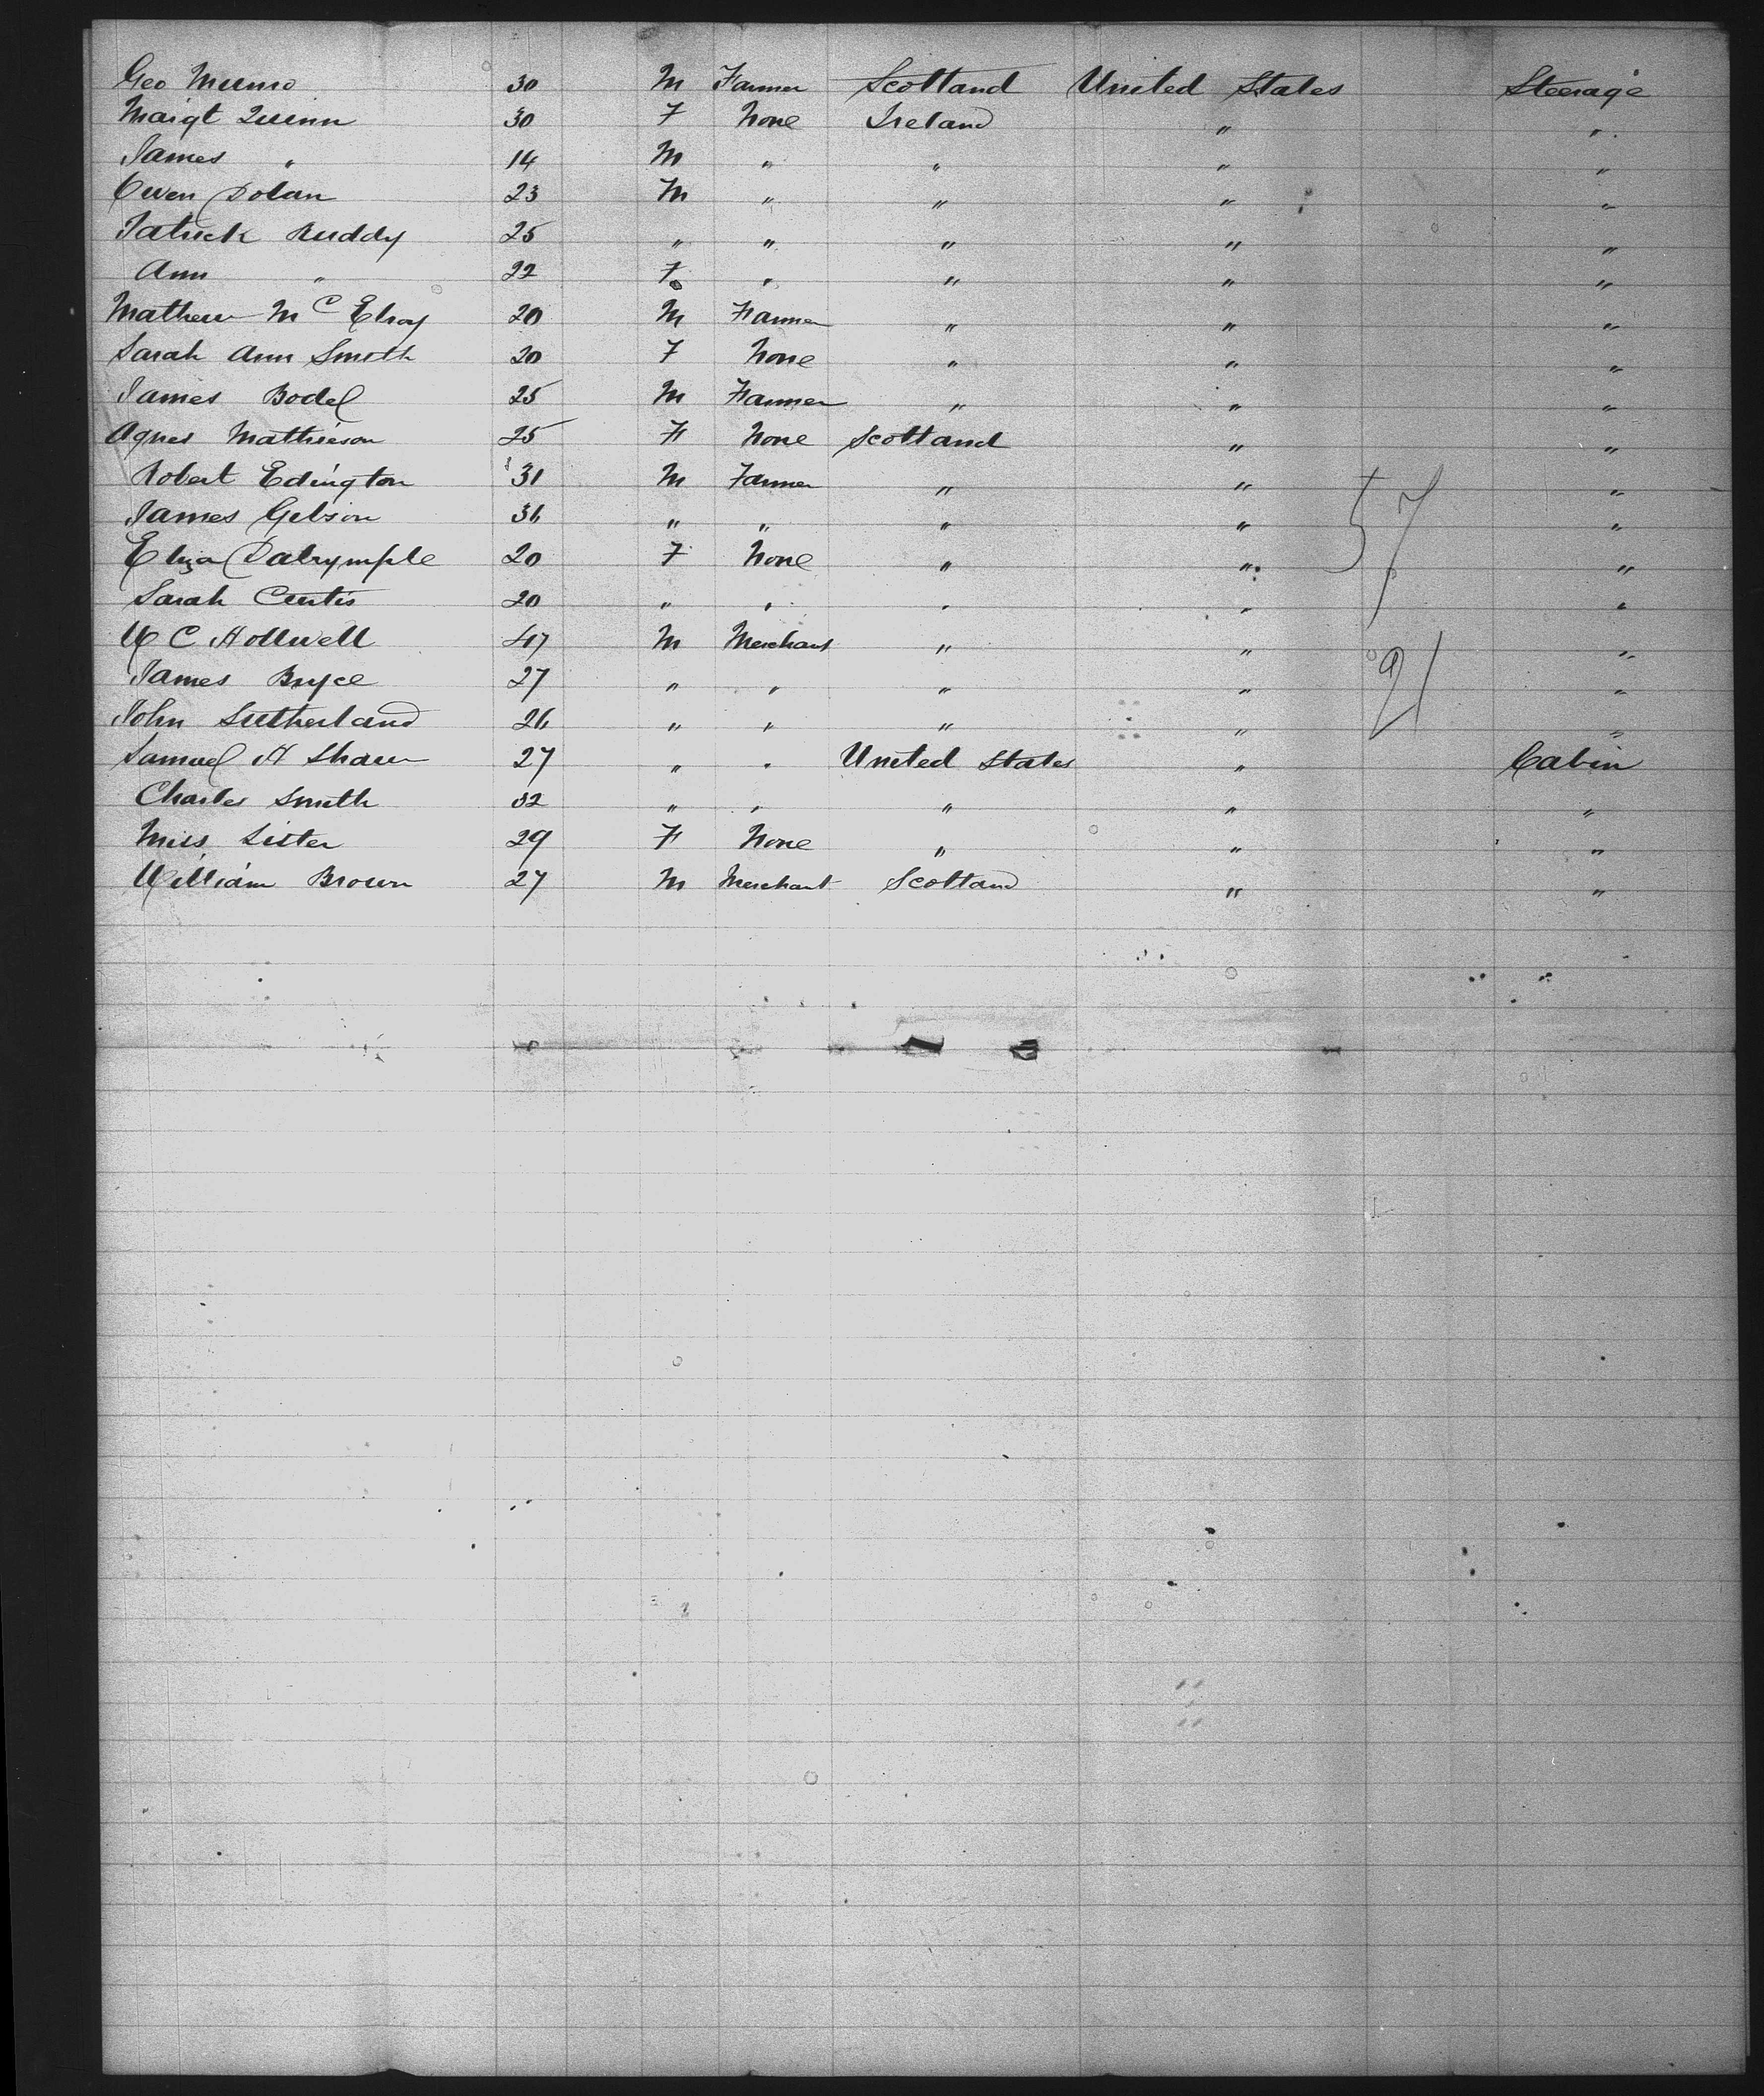 Geo Munro 30 M Farmer Scotland United States Steerage
Margt Quinn 30 F None Ireland " "
James " 14 M " " " "
Owen Dolan 23 M " " " "
Patrick Ruddy 25 " " " " "
Ann " 22 F " " " "
Mathew McElroy 20 M Farmer " " "
Sarah Ann Smith 20 F None " " "
James Bodel 25 M Farmer " " "
Agnes Mathieson 25 F None Scotland " "
Robert Edington 31 M Farmer " " "
James Gibson 36 " " " " "
Eliza Dalrymple 20 F None " " "
57
Sarah Curtis 20 " " " " "
W C Hollwell 47 M Merchant " " "
James Bryce 27 " " " " "
91
John Sutherland 26 " " " " "
Samuel H Shaw 27 " " United States " Cabin
Charles Smith 32 " " " " "
Miss Lister 29 F None " " "
William Brown 27 M Merchant Scotland " "